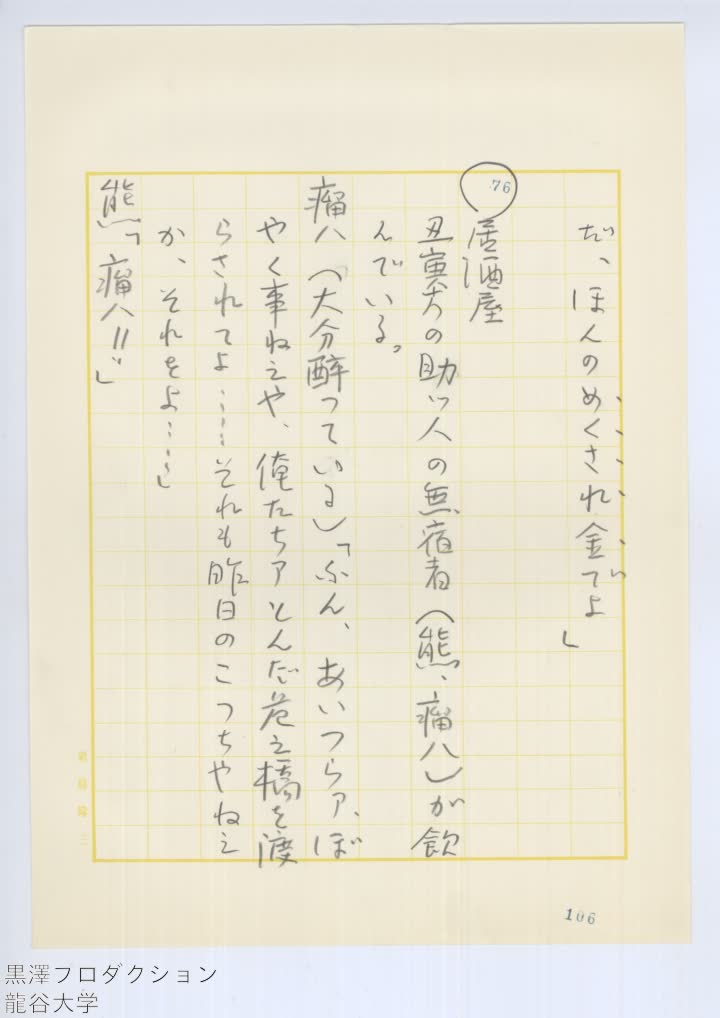 だ、ほんのめくされ金でよ」
76
居酒屋
丑寅方の助ッ人の無宿者（熊、瘤八）が飲
んでいる。
瘤八（大分酔っている）「ふん、あいつらァ、ぼ
やく事ねえや、俺たちァとんだ危え橋を渡
らされてよ……それも昨日のこっちゃねえ
か、それをよ……」
熊「瘤八!!」
106
黒澤フロダクション
龍谷大学